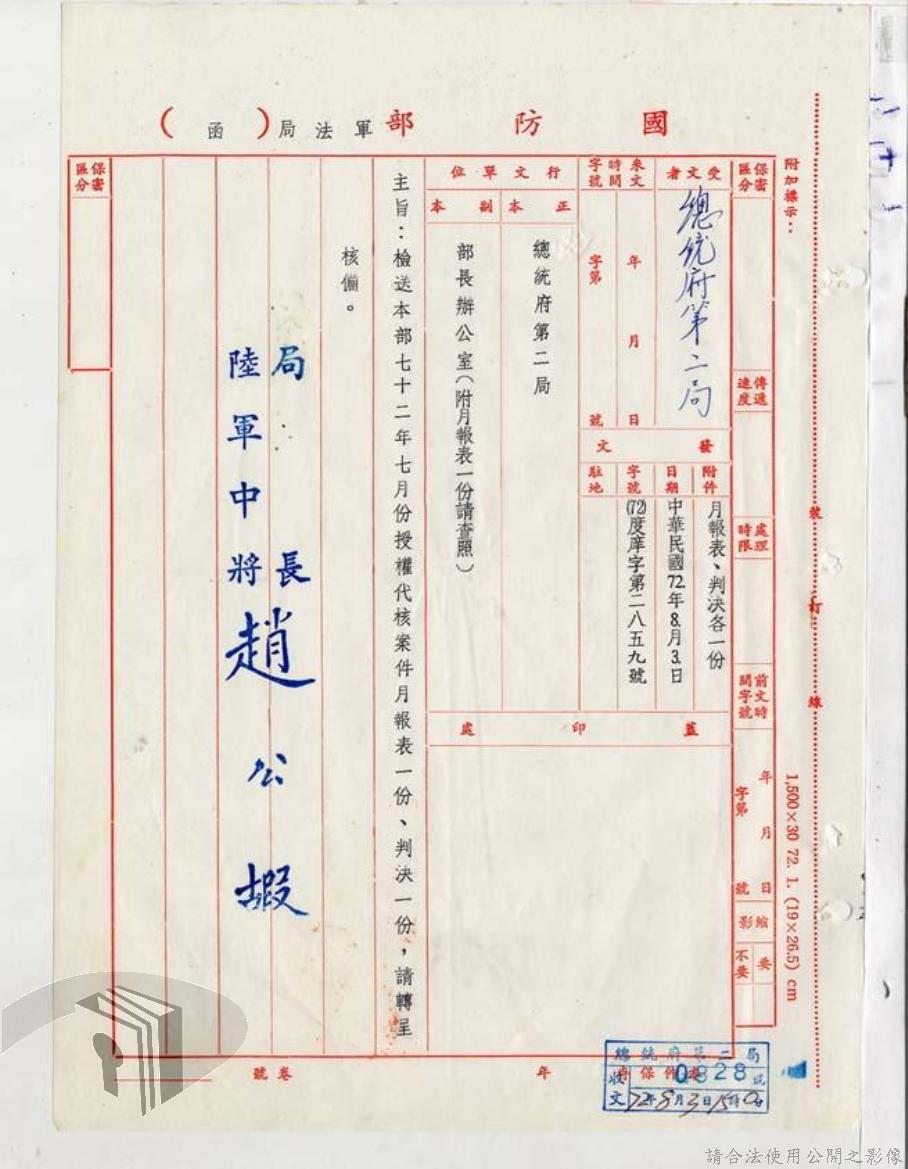 國防部軍法局（函）
附加標示：
裝訂線
1,500×30 72. 1. (19×26.5) cm
保密區分
傳遞速度
處理時限
前文時間字號
年 月 日
字第 號
縮影
要 不要
受文者
總統府第二局
來文時間字號
年 月 日
字第 號
發文
附件
月報表、判決各一份
日期
中華民國72年8月3日
字號
(72)度庠字第二八五九號
駐地
行文單位
正本
總統府第二局
副本
部長辦公室（附月報表一份請查照）
蓋印處
主旨：檢送本部七十二年七月份授權代核案件月報表一份、判決一份，請轉呈
核備。
局長
陸軍中將趙公嘏
保密區分
年 卷號
保存件
總統府第二局
收文 0828號
72年8月3日15時0分
請合法使用公開之影像